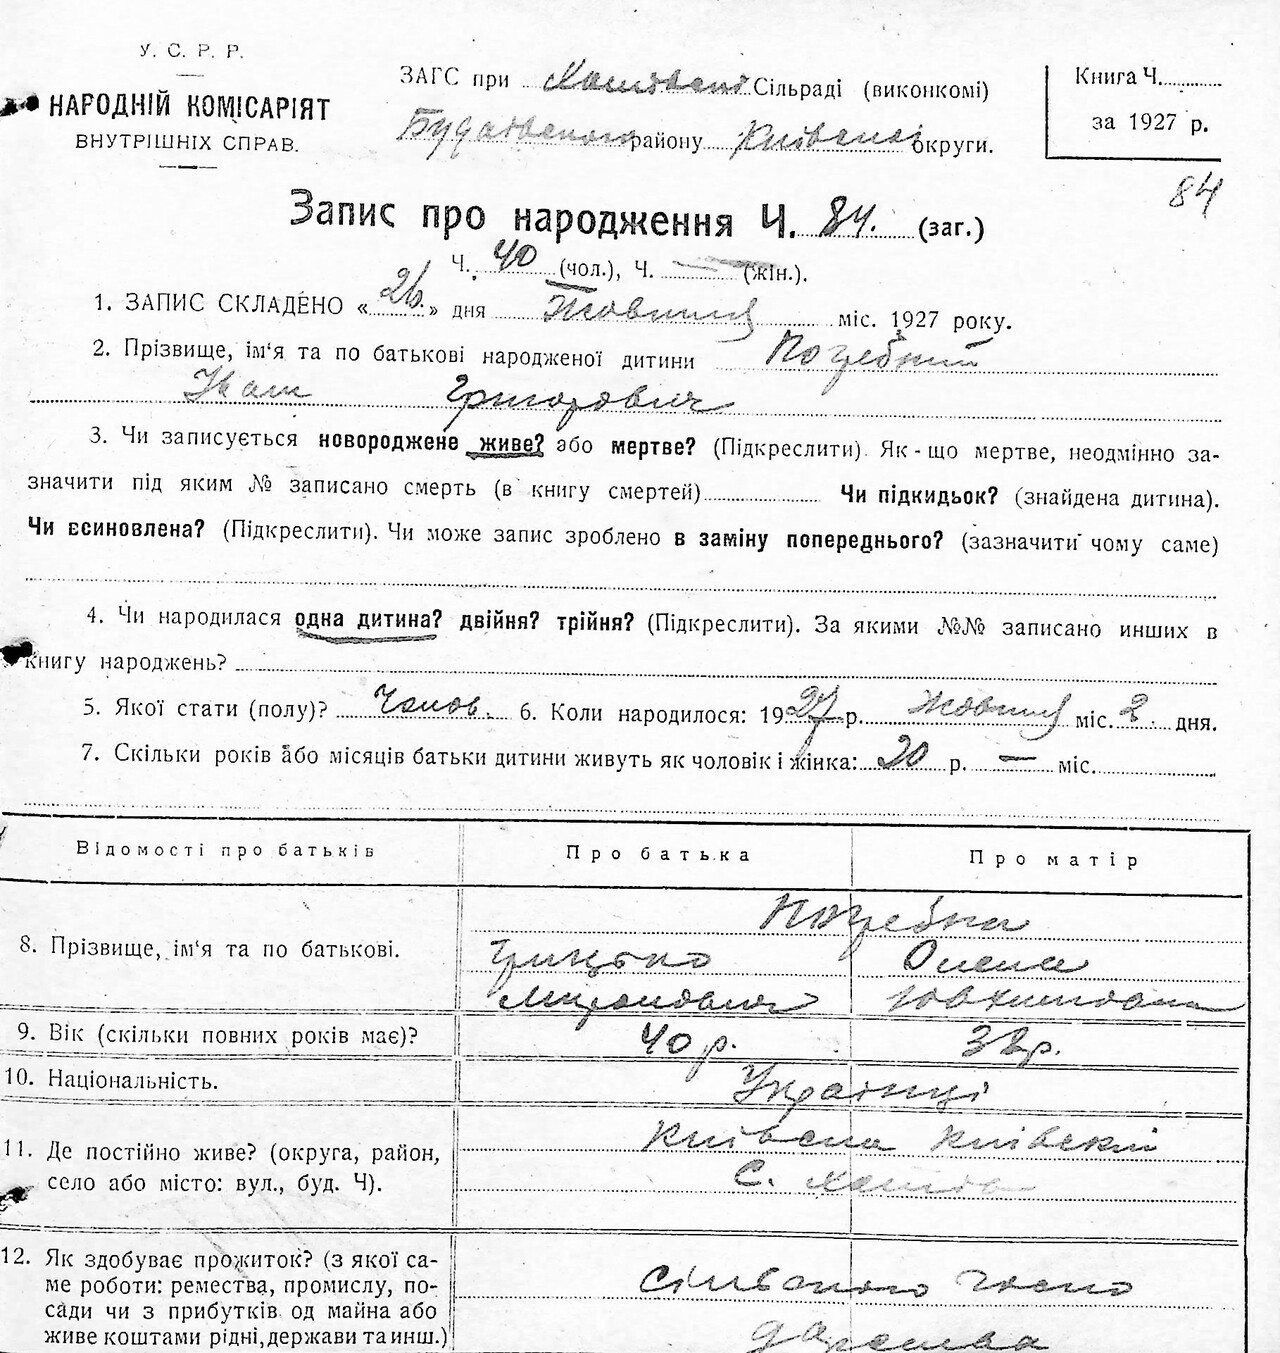 У. С. Р. Р.
НАРОДНІЙ КОМІСАРІЯТ
ВНУТРІШНІХ СПРАВ.
ЗАГС при Хотівські Сільраді (виконкомі)
Будаївського району Київської округи.
Книга Ч.
за 1927 р.
84
Запис про народження Ч. 84. (заг.)
Ч. 40 (чол.), Ч. — (жін.).
1. ЗАПИС СКЛАДЕНО «26» дня Жовтня міс. 1927 року.
2. Прізвище, ім‘я та по батькові народженої дитини Погребний
Іван Григорович
3. Чи записується новороджене живе? або мертве? (Підкреслити). Як-що мертве, неодмінно за-
значити під яким № записано смерть (в книгу смертей) Чи підкидьок? (знайдена дитина).
Чи всиновлена? (Підкреслити). Чи може запис зроблено в заміну попереднього? (зазначити чому саме)
4. Чи народилася одна дитина? двійня? трійня? (Підкреслити). За якими №№ записано инших в
книгу народжень?
5. Якої стати (полу)? Чолов. 6. Коли народилося: 1927 р. Жовтня міс. 2. дня.
7. Скільки років або місяців батьки дитини живуть як чоловік і жінка: 20 р. — міс.
Відомості про батьків Про батька Про матір
8. Прізвище, ім‘я та по батькові.
Погребна
Грицько Олена
Миронович Ювхимовна
9. Вік (скільки повних років має)? 40 р. 38 р.
10. Національність. Українці
11. Де постійно живе? (округа, район,
село або місто: вул., буд. Ч).
Київська Київський
С. Хотів
12. Як здобуває прожиток? (з якої са-
ме роботи: ремества, промислу, по-
сади чи з прибутків од майна або
живе коштами рідні, держави та инш.)
сільського госпо
дарства